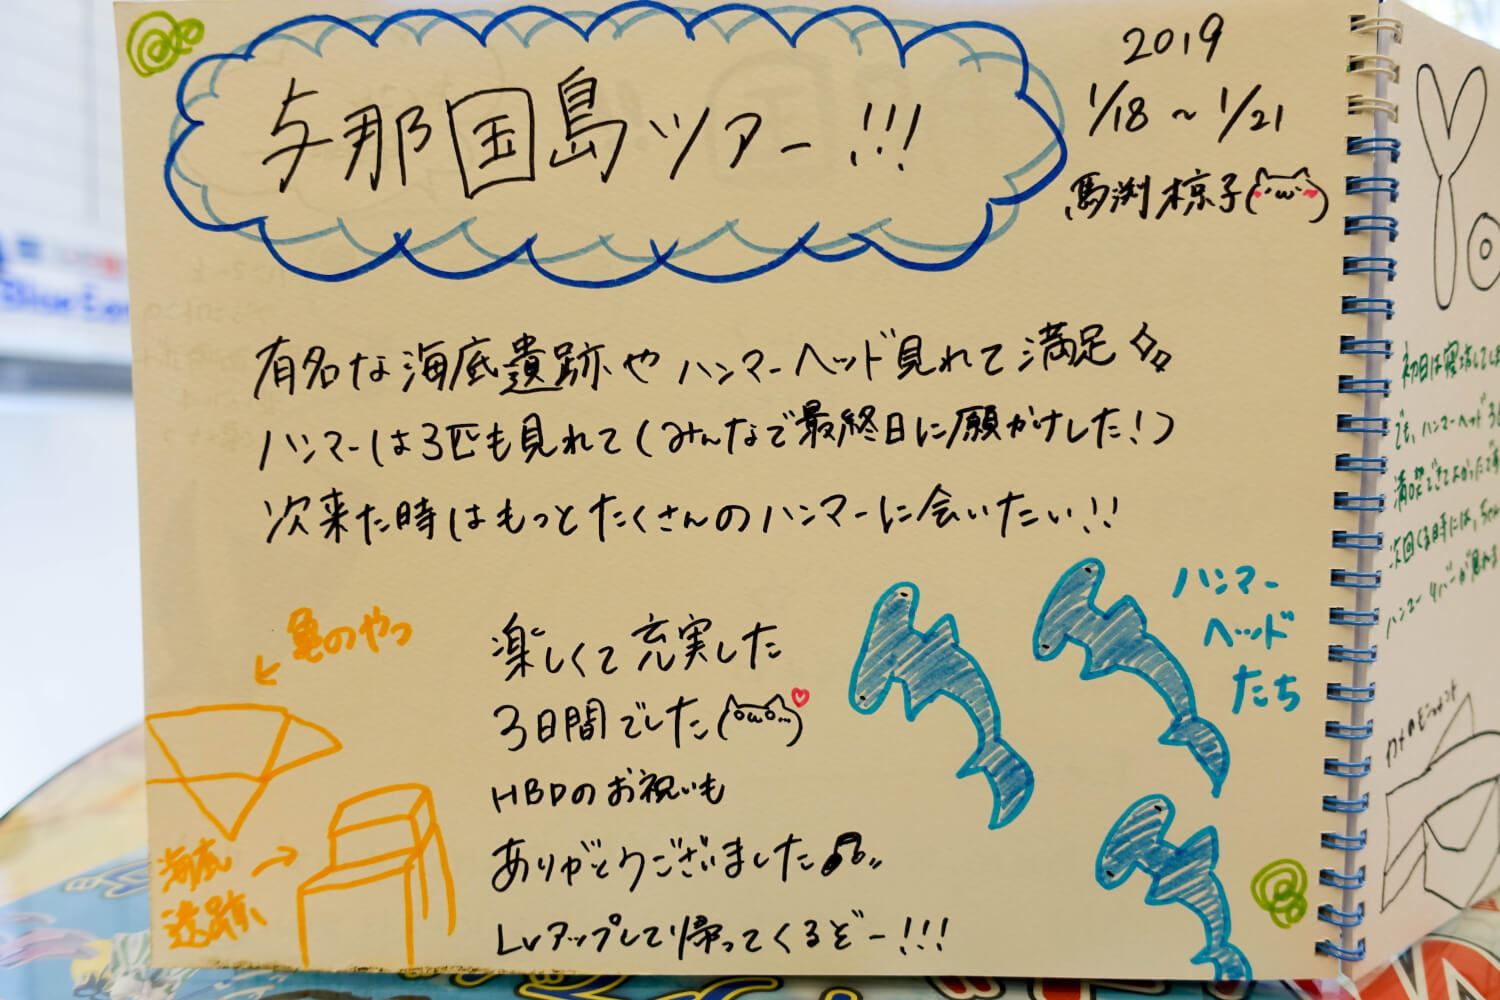 与那国島ツアー!!!
2019
1/18 ~ 1/21
馬渕 椋子(・ω・)
有名な海底遺跡やハンマーヘッド見れて満足
ハンマーは3匹も見れて(みんなで最終日に願かけした!)
次来た時はもっとたくさんのハンマーに会いたい!!
亀のやつ
海底
遺跡
楽しくて充実した
3日間でした(oωo…)
HBDのお祝いも
ありがとうございました♪〃
Lvアップして帰ってくるぞー!!!
ハンマー
ヘッド
たち
Yo
初日は寝坊してしま
でも、ハンマーヘッド3
満喫できてよかったで
次回くる時には、ちゃん
ハンマーリバーが見れま
Blue Ear